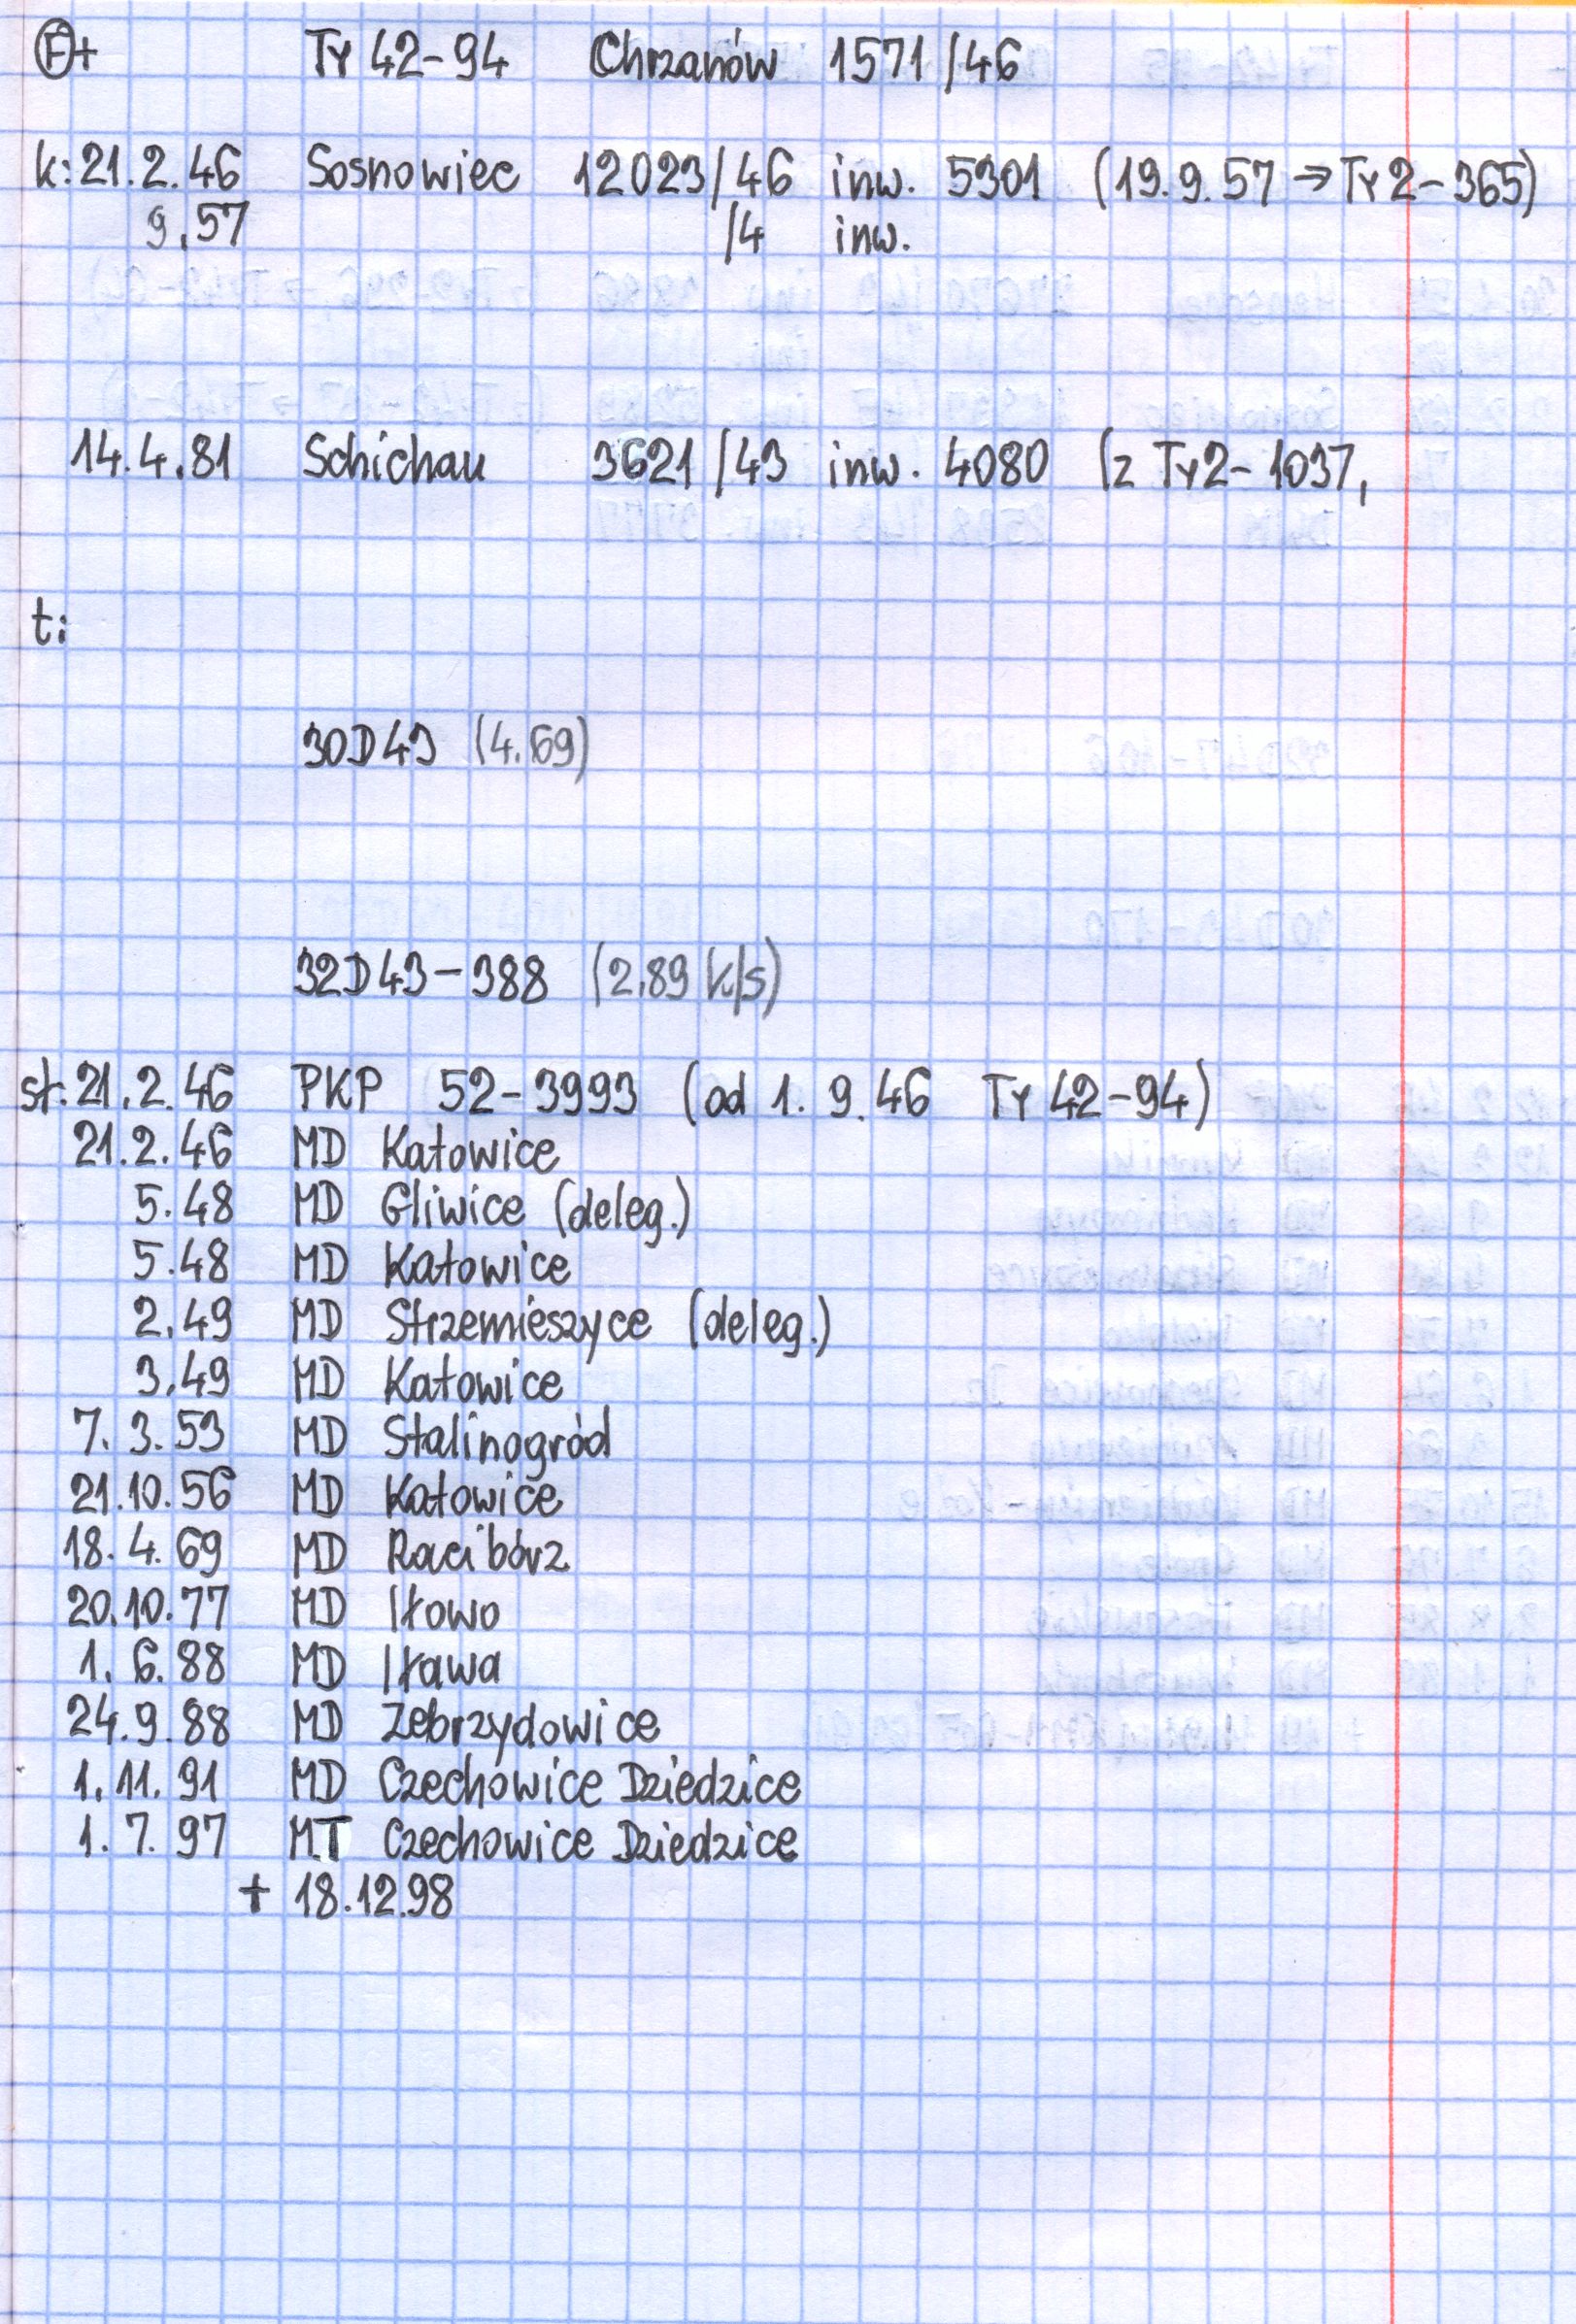 Ⓕ+ Ty 42-94 Chrzanów 1571/46
k: 21.2.46 Sosnowiec 12023/46 inw. 5301 (19.9.57 → Ty 2-365)
9.57 /4 inw.
14.4.81 Schichau 3621/43 inw. 4080 (z Ty2-1037,
t:
30D43 (4.69)
32D43-388 (2.89 k/s)
st: 21.2.46 PKP 52-3993 (od 1.9.46 Ty 42-94)
21.2.46 MD Katowice
5.48 MD Gliwice (deleg.)
5.48 MD Katowice
2.49 MD Strzemieszyce (deleg.)
3.49 MD Katowice
7.3.53 MD Stalinogród
21.10.56 MD Katowice
18.4.69 MD Racibórz
20.10.77 MD Iłowo
1.6.88 MD Iława
24.9.88 MD Zebrzydowice
1.11.91 MD Czechowice Dziedzice
1.7.97 MT Czechowice Dziedzice
+ 18.12.98